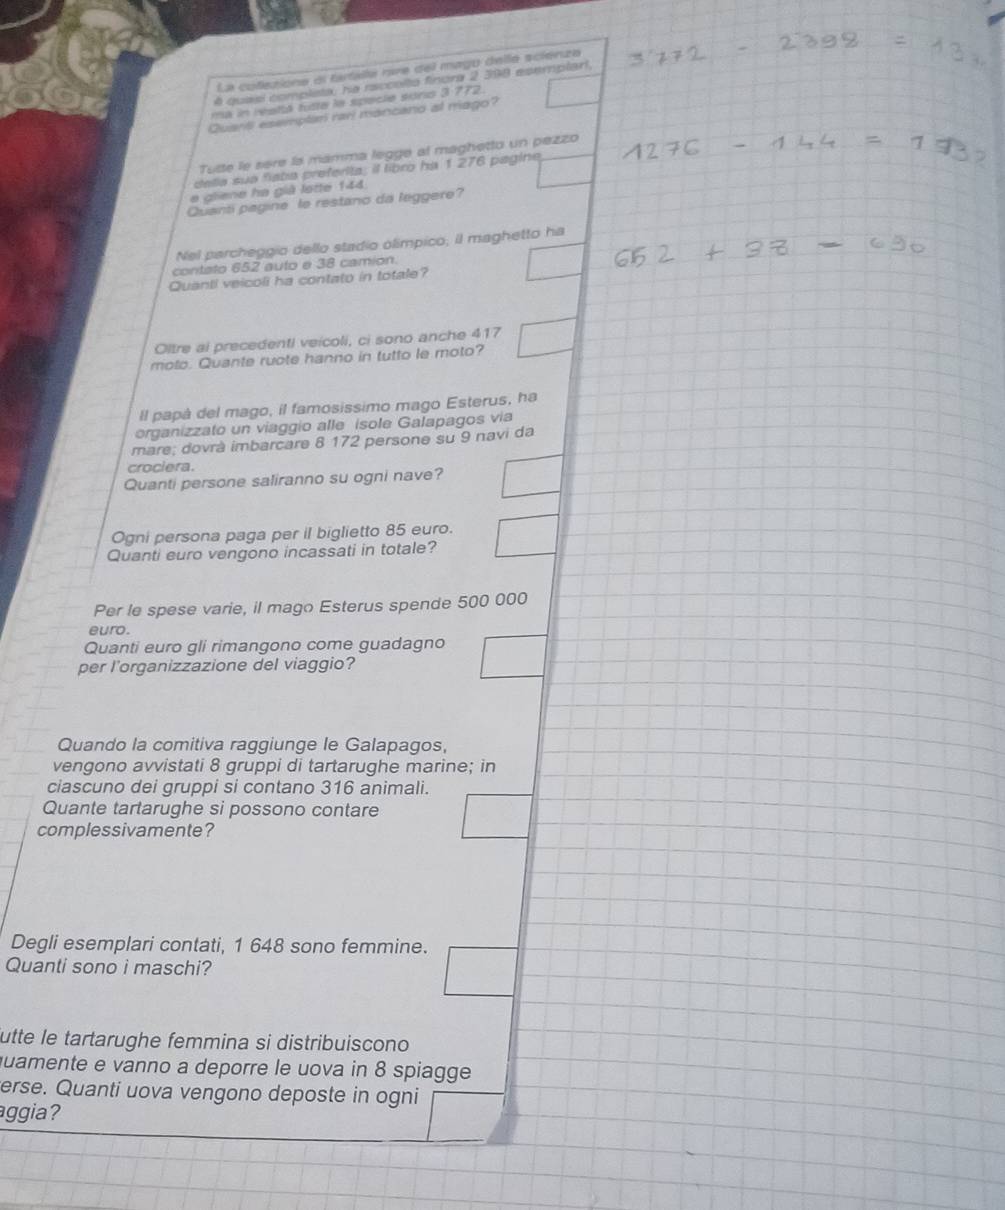 La collezione di farfalle rare del mago delle scienze
è quasi completa, ha raccolto finora 2 398 esemplari,
ma in realtà tutte le specie sono 3 772.
Quanti esemplari rari mancano al mago?
3772 - 2398 = 13
Tutte le sere la mamma legge al maghetto un pezzo
della sua fiaba preferita; il libro ha 1 276 pagine
e gliene ha già lette 144.
Quanti pagine le restano da leggere?
1276 - 144 =
Nel parcheggio dello stadio olimpico, il maghetto ha
contato 652 auto e 38 camion.
Quanti veicoli ha contato in totale?
652 + 38 - 690
Oltre ai precedenti veicoli, ci sono anche 417
moto. Quante ruote hanno in tutto le moto?
Il papà del mago, il famosissimo mago Esterus, ha
organizzato un viaggio alle isole Galapagos via
mare; dovrà imbarcare 8 172 persone su 9 navi da
crociera.
Quanti persone saliranno su ogni nave?
Ogni persona paga per il biglietto 85 euro.
Quanti euro vengono incassati in totale?
Per le spese varie, il mago Esterus spende 500 000
euro.
Quanti euro gli rimangono come guadagno
per l'organizzazione del viaggio?
Quando la comitiva raggiunge le Galapagos,
vengono avvistati 8 gruppi di tartarughe marine; in
ciascuno dei gruppi si contano 316 animali.
Quante tartarughe si possono contare
complessivamente?
Degli esemplari contati, 1 648 sono femmine.
Quanti sono i maschi?
utte le tartarughe femmina si distribuiscono
uamente e vanno a deporre le uova in 8 spiagge
erse. Quanti uova vengono deposte in ogni
aggia?